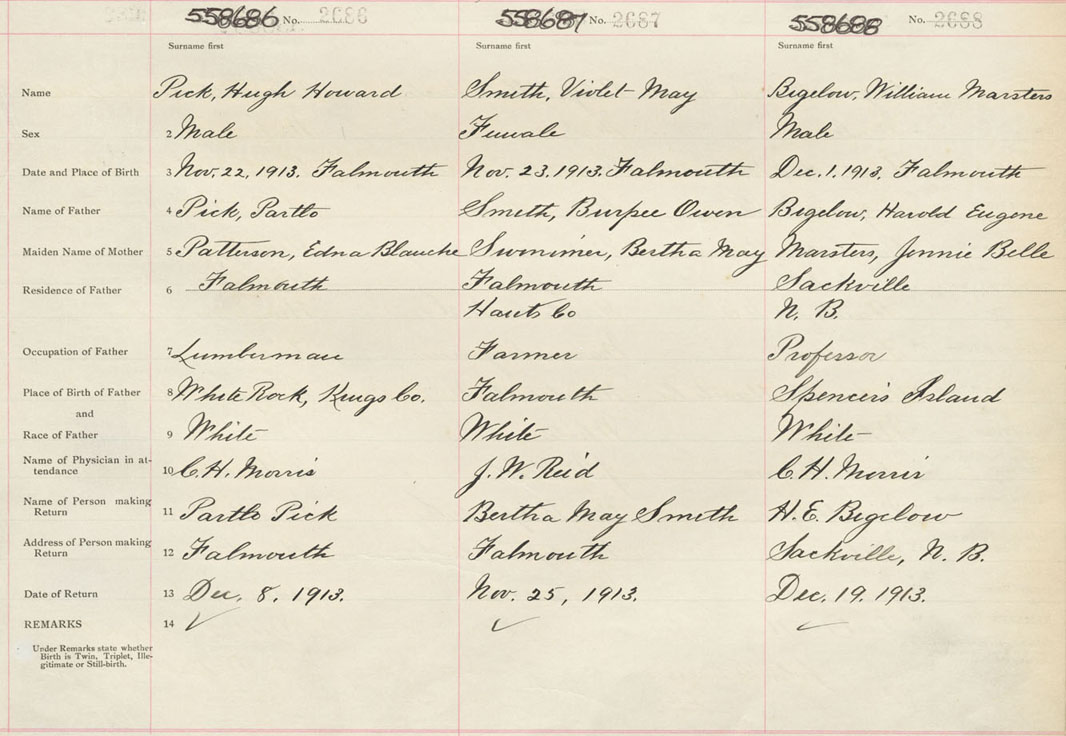 558686 No. 2686 558687 No. 2687 558688 No. 2688
Surname first Surname first Surname first
Name Pick, Hugh Howard Smith, Violet May Bigelow, William Marsters
Sex 2 Male Female Male
Date and Place of Birth 3 Nov. 22, 1913. Falmouth Nov. 23. 1913. Falmouth Dec. 1. 1913. Falmouth
Name of Father 4 Pick, Partlo Smith, Burpee Owen Bigelow, Harold Eugene
Maiden Name of Mother 5 Patterson, Edna Blanche Swimimer, Bertha May Marsters, Jennie Belle
Residence of Father 6 Falmouth Falmouth Sackville
Hants Co N. B.
Occupation of Father 7 Lumberman Farmer Professor
Place of Birth of Father 8 White Rock, Kings Co. Falmouth Spencer's Island
and
Race of Father 9 White White White
Name of Physician in at-
tendance 10 C. H. Morris J. W. Reid C. H. Morris
Name of Person making
Return 11 Partlo Pick Bertha May Smith H. E. Bigelow
Address of Person making
Return 12 Falmouth Falmouth Sackville, N. B.
Date of Return 13 Dec. 8. 1913. Nov. 25, 1913. Dec. 19. 1913.
REMARKS 14 ✓ ✓ ✓
Under Remarks state whether
Birth is Twin, Triplet, Ille-
gitimate or Still-birth.